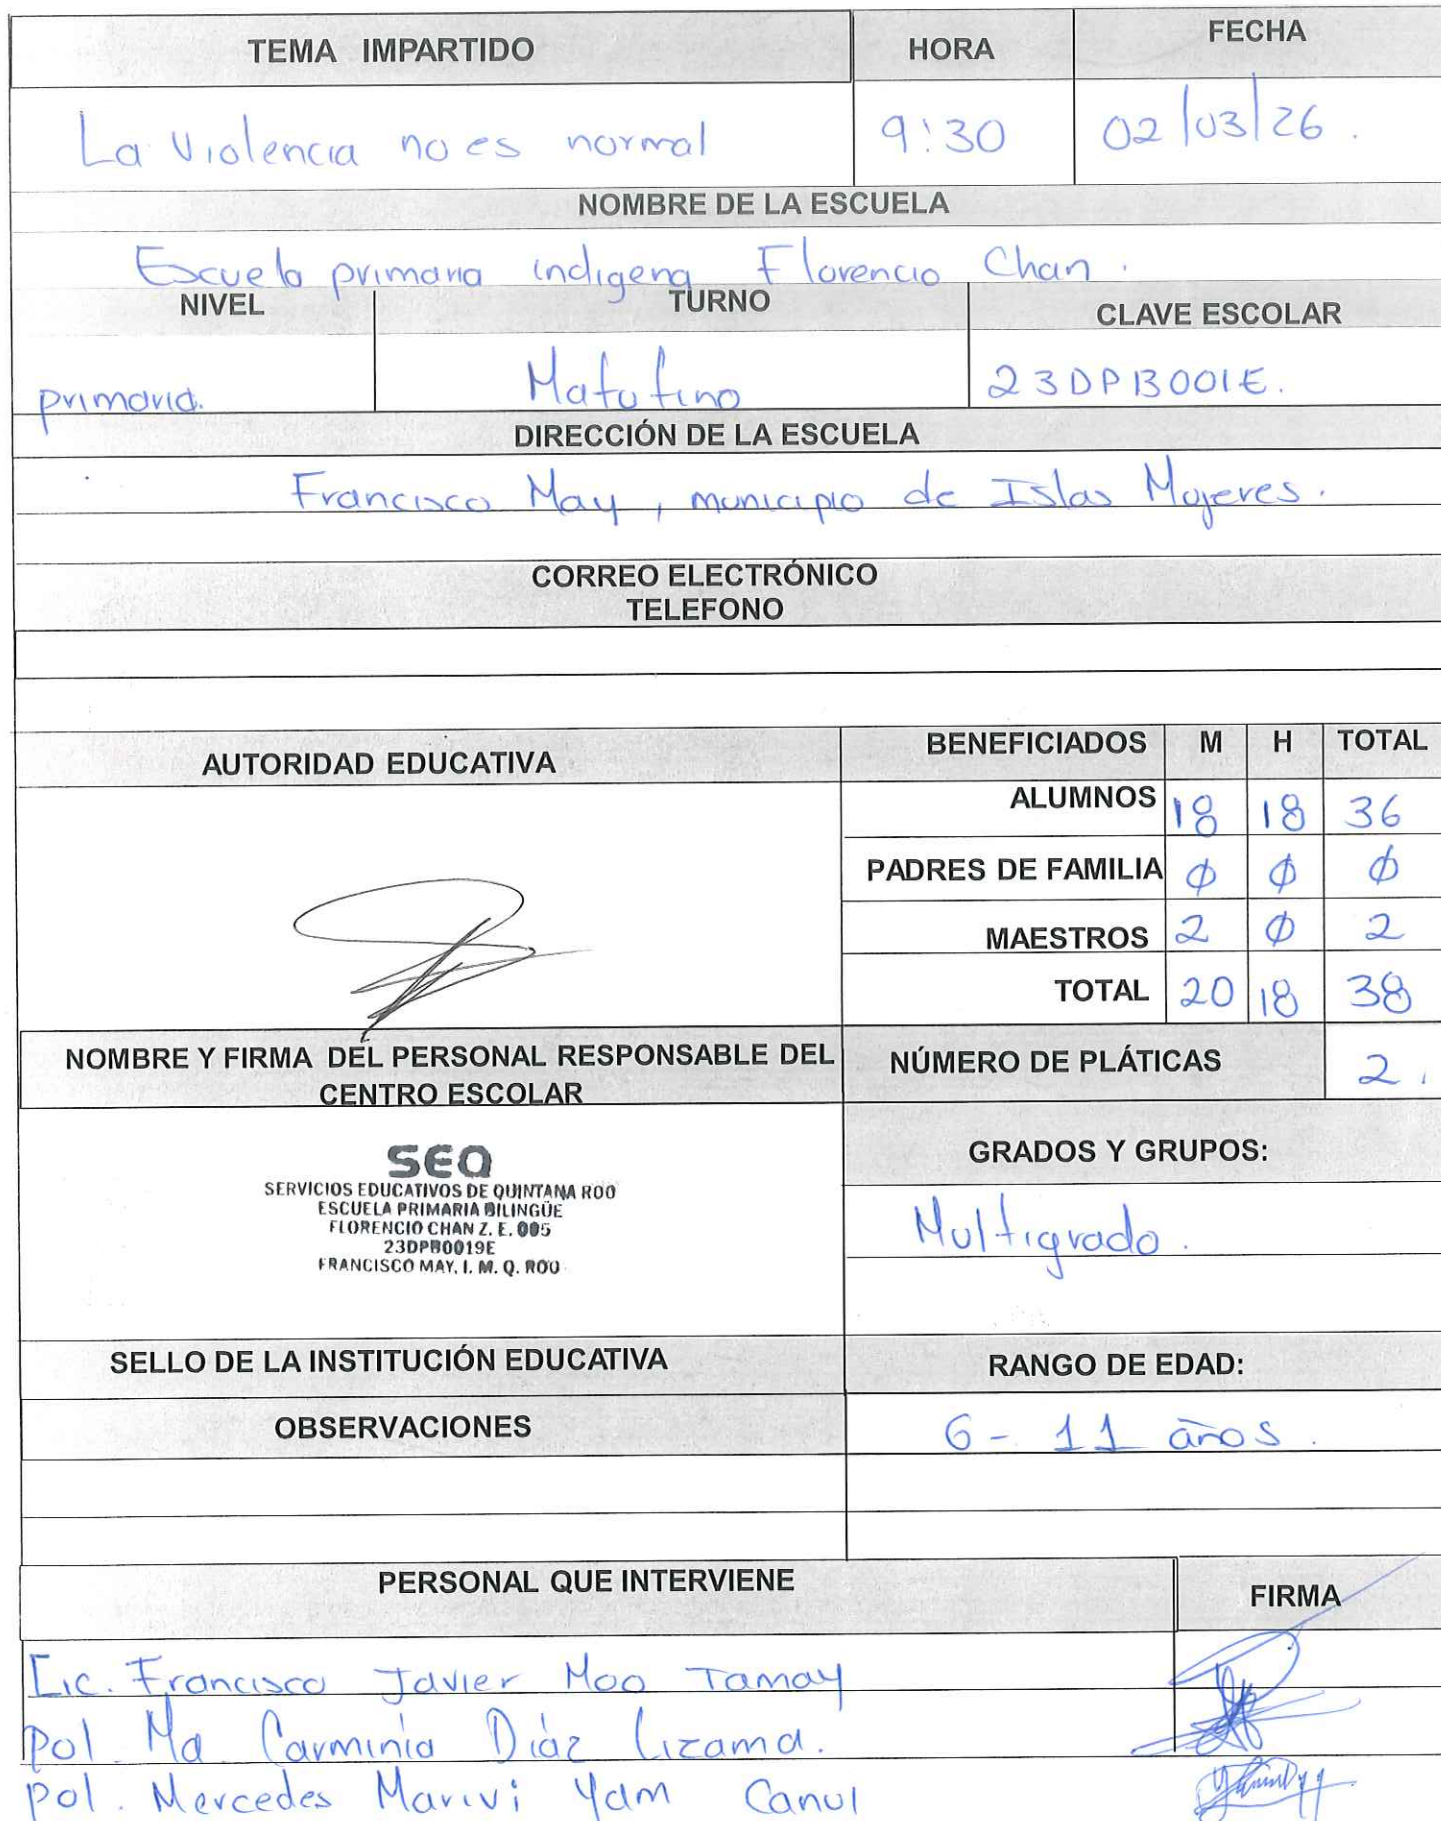 TEMA IMPARTIDO HORA FECHA
La Violencia no es normal 9:30 02/03/26.
NOMBRE DE LA ESCUELA
Escuela primaria indigena Florencio Chan.
NIVEL TURNO CLAVE ESCOLAR
primaria. Matutino 23DPB001E.
DIRECCIÓN DE LA ESCUELA
Francisco May, municipio de Islas Mujeres.
CORREO ELECTRÓNICO
TELEFONO
AUTORIDAD EDUCATIVA BENEFICIADOS M H TOTAL
ALUMNOS 18 18 36
PADRES DE FAMILIA Ø Ø Ø
MAESTROS 2 Ø 2
TOTAL 20 18 38
NOMBRE Y FIRMA DEL PERSONAL RESPONSABLE DEL
CENTRO ESCOLAR
NÚMERO DE PLÁTICAS 2.
SEQ
SERVICIOS EDUCATIVOS DE QUINTANA ROO
ESCUELA PRIMARIA BILINGÜE
FLORENCIO CHAN Z. E. 005
23DPB0019E
FRANCISCO MAY, I. M. Q. ROO
GRADOS Y GRUPOS:
Multigrado.
SELLO DE LA INSTITUCIÓN EDUCATIVA RANGO DE EDAD:
OBSERVACIONES 6 - 11 años.
PERSONAL QUE INTERVIENE FIRMA
Lic. Francisco Javier Moo Tamay
Pol. Ma Carminia Diáz Lizama.
Pol. Mercedes Marivi Yam Canul